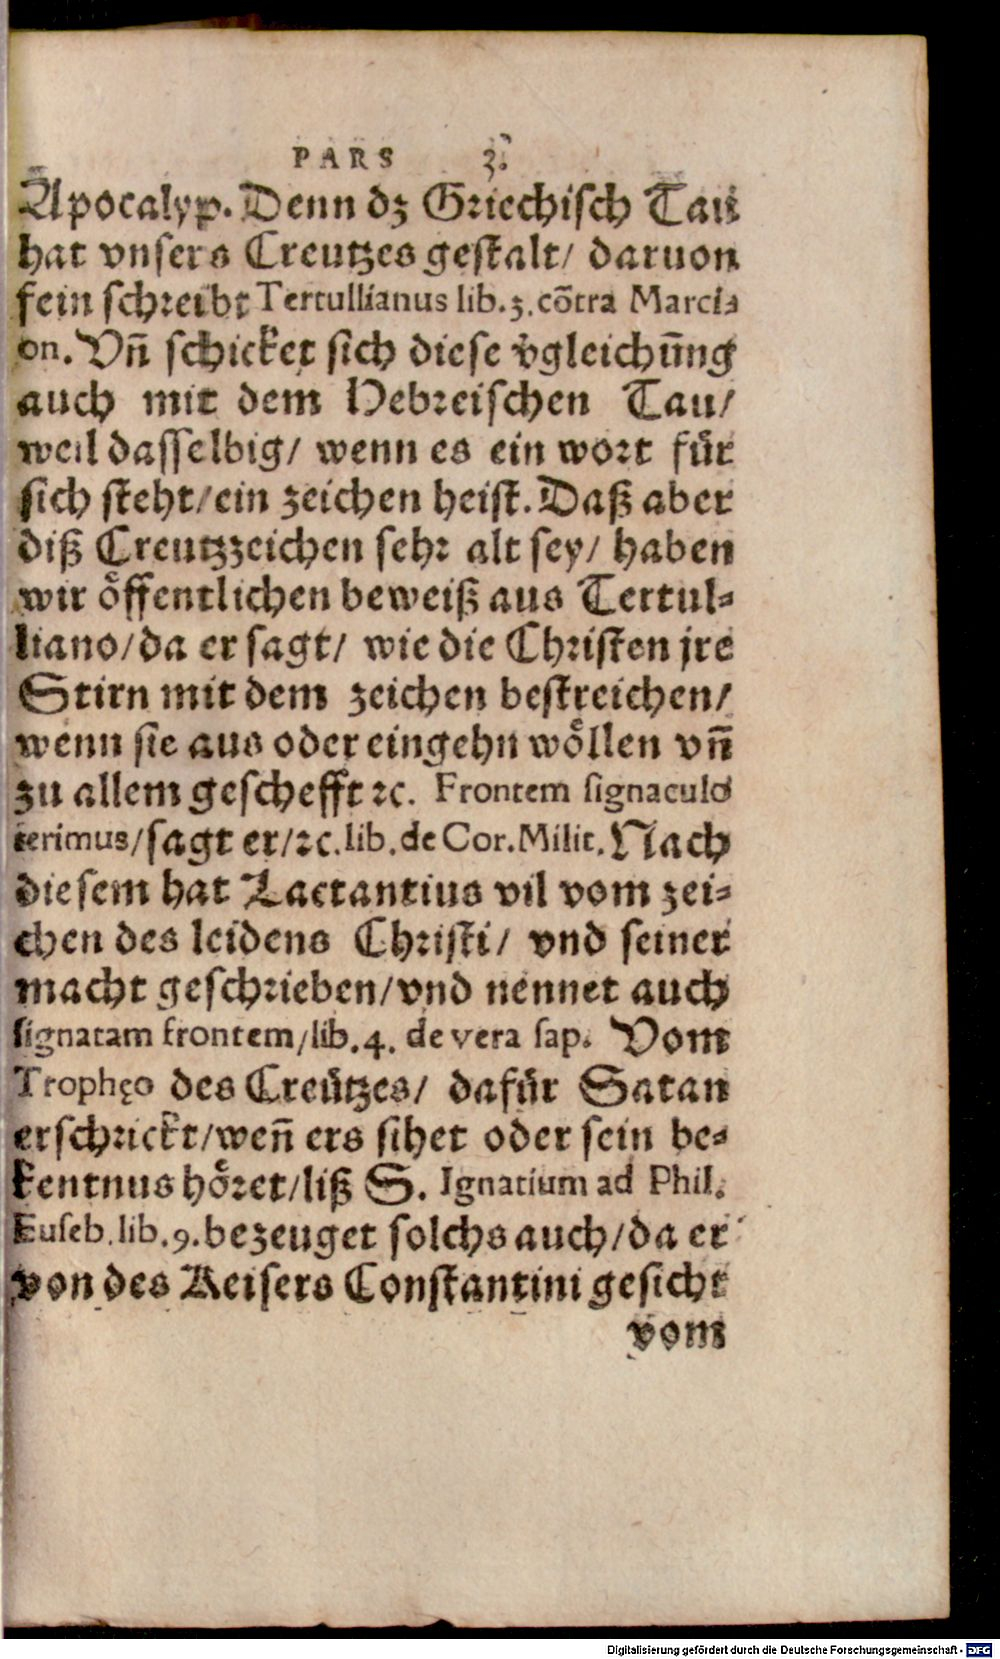 PARS 3.
Apocalyp. Denn dz Griechisch Tau
hat vnsers Creutzes gestalt/ daruon
fein schreibt Tertullianus lib. 3. cõtra Marci⸗
on. Vn̄ schicket sich diese v̊gleichūng
auch mit dem Hebreischen Tau/
weil dasselbig/ wenn es ein wort für
sich steht/ ein zeichen heist. Daß aber
diß Creutzzeichen sehr alt sey/ haben
wir öffentlichen beweiß aus Tertul⸗
liano/ da er sagt/ wie die Christen jre
Stirn mit dem zeichen bestreichen/
wenn sie aus oder eingehn wöllen vn̄
zu allem geschefft ꝛc. Frontem signaculo
terimus/ sagt er/ ꝛc. lib. de Cor. Milit. Nach
diesem hat Lactantius vil vom zei⸗
chen des leidens Christi/ vnd seiner
macht geschrieben/ vnd nennet auch
signatam frontem/ lib. 4. de vera sap. Vom
Trophęo des Creützes/ dafür Satan
erschrickt/ wen̄ ers sihet oder sein be⸗
kentnus höret/ liß S. Ignatium ad Phil.
Euseb. lib. 9. bezeuget solchs auch/ da er
von des Keisers Constantini gesicht
vom
Digitalisierung gefördert durch die Deutsche Forschungsgemeinschaft - DFG